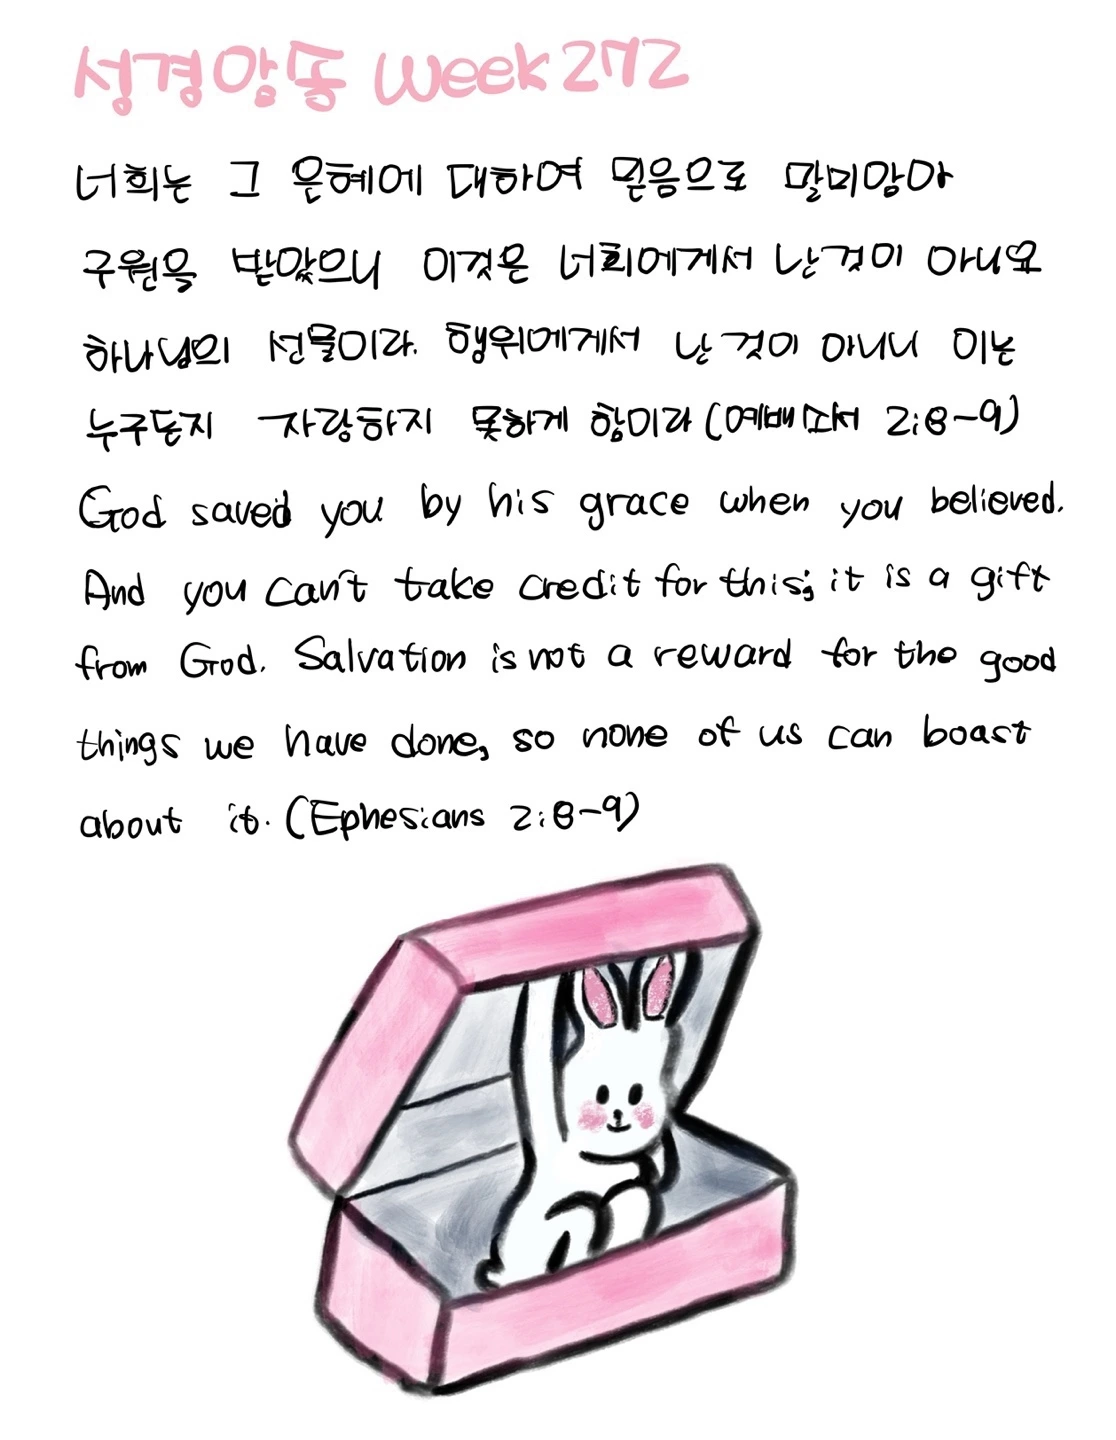 성경암송 Week 272
너희는 그 은혜에 대하여 믿음으로 말미암아
구원을 받았으니 이것은 너희에게서 난 것이 아니요
하나님의 선물이라. 행위에게서 난 것이 아니니 이는
누구든지 자랑하지 못하게 함이라 (에베소서 2:8-9)
God saved you by his grace when you believed.
And you can't take credit for this; it is a gift
from God. Salvation is not a reward for the good
things we have done, so none of us can boast
about it. (Ephesians 2:8-9)